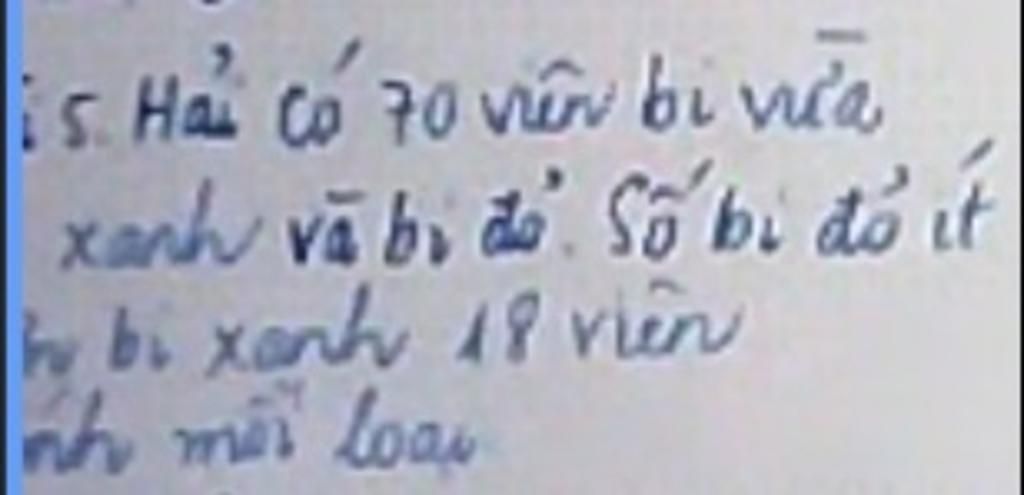 5. Hải có 70 viên bi vừa
xanh và bi đỏ. Số bi đỏ ít
bi xanh 18 viên
mỗi loại